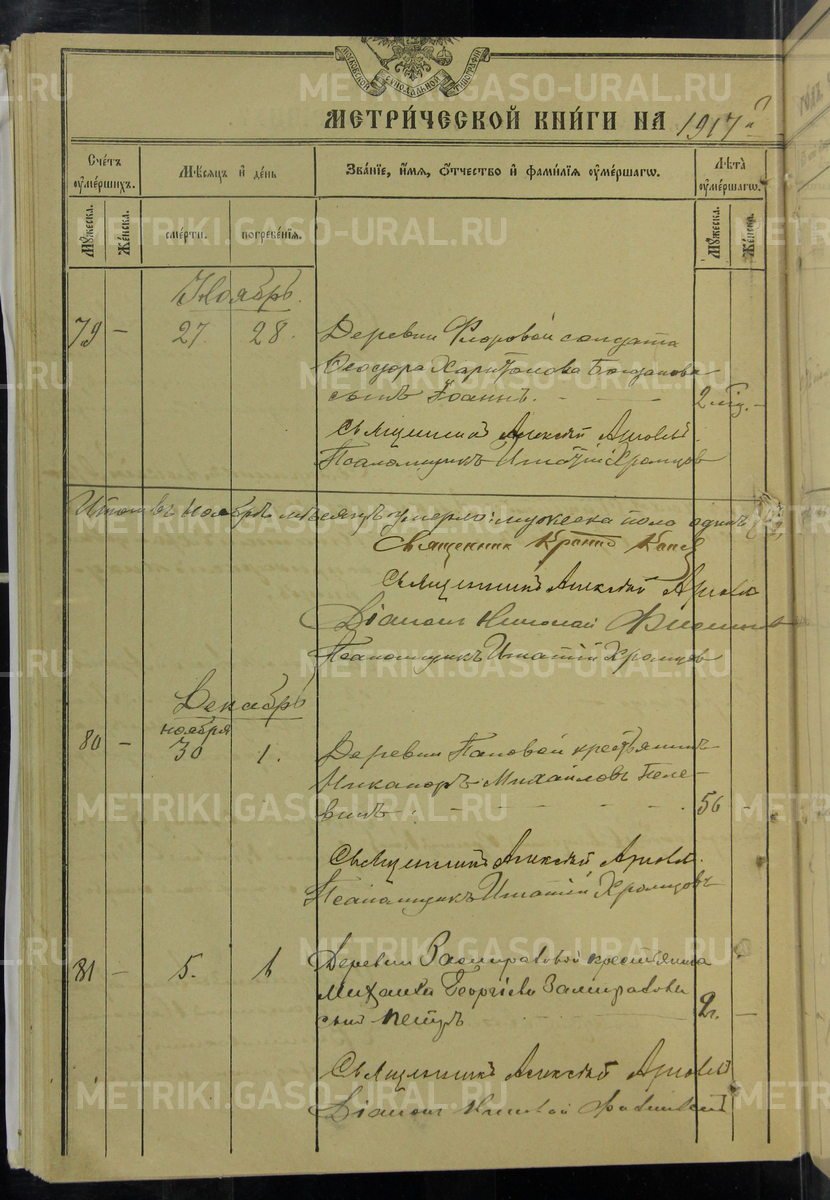 МЕТРИ́ЧЕСКОЙ КНИ́ГИ НА 1917 г
Сче́тъ ᲂу҆ме́ршихъ.
Мѣ́сяцъ и҆ де́нь
Зва́нїе, и҆́мѧ, ѻ҆́тчество и҆ фами́лїѧ ᲂу҆ме́ршагѡ.
Лѣ́та ᲂу҆ме́ршагѡ.
Мꙋ́жеска.
Же́нска.
сме́рти.
погребе́нїѧ.
Мꙋ́жеска.
Же́нска.
Ноябрь.
79 – 27. 28. Деревни Фроровой солдата
Ѳеодора Харитонова Богданова
сынъ Іоаннъ. – – 2 мѣс. –
Священникъ Алексѣй
Псаломщикъ Игнатій Храмцов
Итого въ ноябрѣ мѣсяцѣ умерло: мужеска пола одинъ
Священник
Священникъ Алексѣй
Діаконъ Николай
Псаломщикъ Игнатій Храмцов
Декабрь
80 – ноября 30 1. Деревни Поповой крестьянинъ
Никаноръ Михайловъ Пеле-
винъ. – – – – – 56 –
Священникъ Алексѣй
Псаломщикъ Игнатій Храмцовъ
81 – 5. 6 Деревни крестьянина
Михаила Георгіева
сынъ Петръ 2 г. –
Священникъ Алексѣй
Діаконъ Николай
METRIKI.GASO-URAL.RU